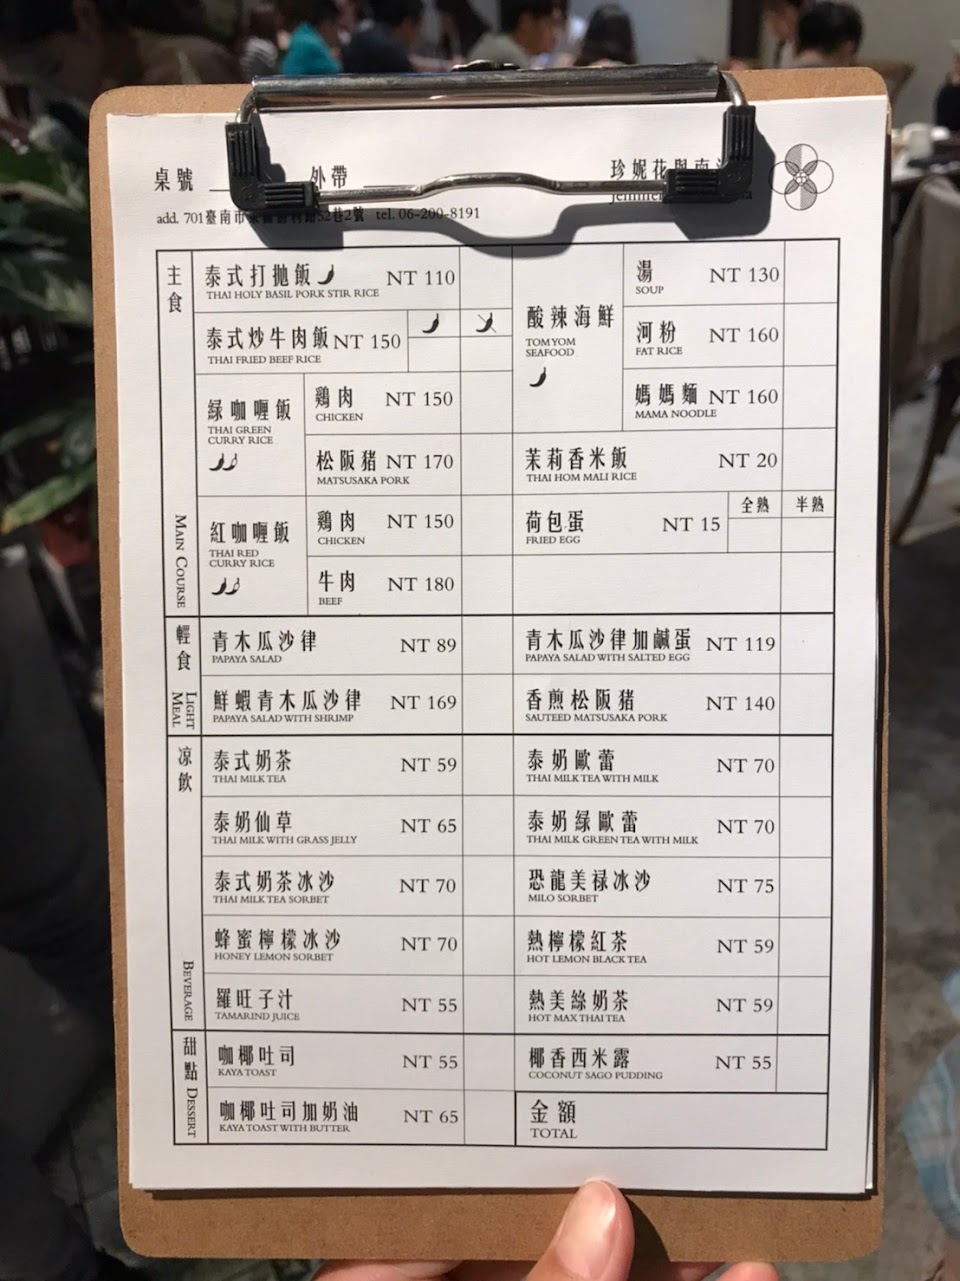 桌號 外帶
珍妮花與南洋
add. 701臺南市 52巷2號 tel. 06-200-8191
主食
MAIN COURSE
泰式打拋飯 NT 110
THAI HOLY BASIL PORK STIR RICE
泰式炒牛肉飯 NT 150
THAI FRIED BEEF RICE
綠咖喱飯
THAI GREEN
CURRY RICE
鷄肉 NT 150
CHICKEN
松阪豬 NT 170
MATSUSAKA PORK
紅咖喱飯
THAI RED
CURRY RICE
鷄肉 NT 150
CHICKEN
牛肉 NT 180
BEEF
酸辣海鮮
TOM YOM
SEAFOOD
湯 NT 130
SOUP
河粉 NT 160
FAT RICE
媽媽麵 NT 160
MAMA NOODLE
茉莉香米飯 NT 20
THAI HOM MALI RICE
荷包蛋 NT 15
FRIED EGG
全熟 半熟
輕食
LIGHT
MEAL
青木瓜沙律 NT 89
PAPAYA SALAD
青木瓜沙律加鹹蛋 NT 119
PAPAYA SALAD WITH SALTED EGG
鮮蝦青木瓜沙律 NT 169
PAPAYA SALAD WITH SHRIMP
香煎松阪豬 NT 140
SAUTEED MATSUSAKA PORK
凉飲
BEVERAGE
泰式奶茶 NT 59
THAI MILK TEA
泰奶歐蕾 NT 70
THAI MILK TEA WITH MILK
泰奶仙草 NT 65
THAI MILK WITH GRASS JELLY
泰奶綠歐蕾 NT 70
THAI MILK GREEN TEA WITH MILK
泰式奶茶冰沙 NT 70
THAI MILK TEA SORBET
恐龍美祿冰沙 NT 75
MILO SORBET
蜂蜜檸檬冰沙 NT 70
HONEY LEMON SORBET
熱檸檬紅茶 NT 59
HOT LEMON BLACK TEA
羅旺子汁 NT 55
TAMARIND JUICE
熱美絲奶茶 NT 59
HOT MAX THAI TEA
甜點
DESSERT
咖椰吐司 NT 55
KAYA TOAST
椰香西米露 NT 55
COCONUT SAGO PUDDING
咖椰吐司加奶油 NT 65
KAYA TOAST WITH BUTTER
金額
TOTAL